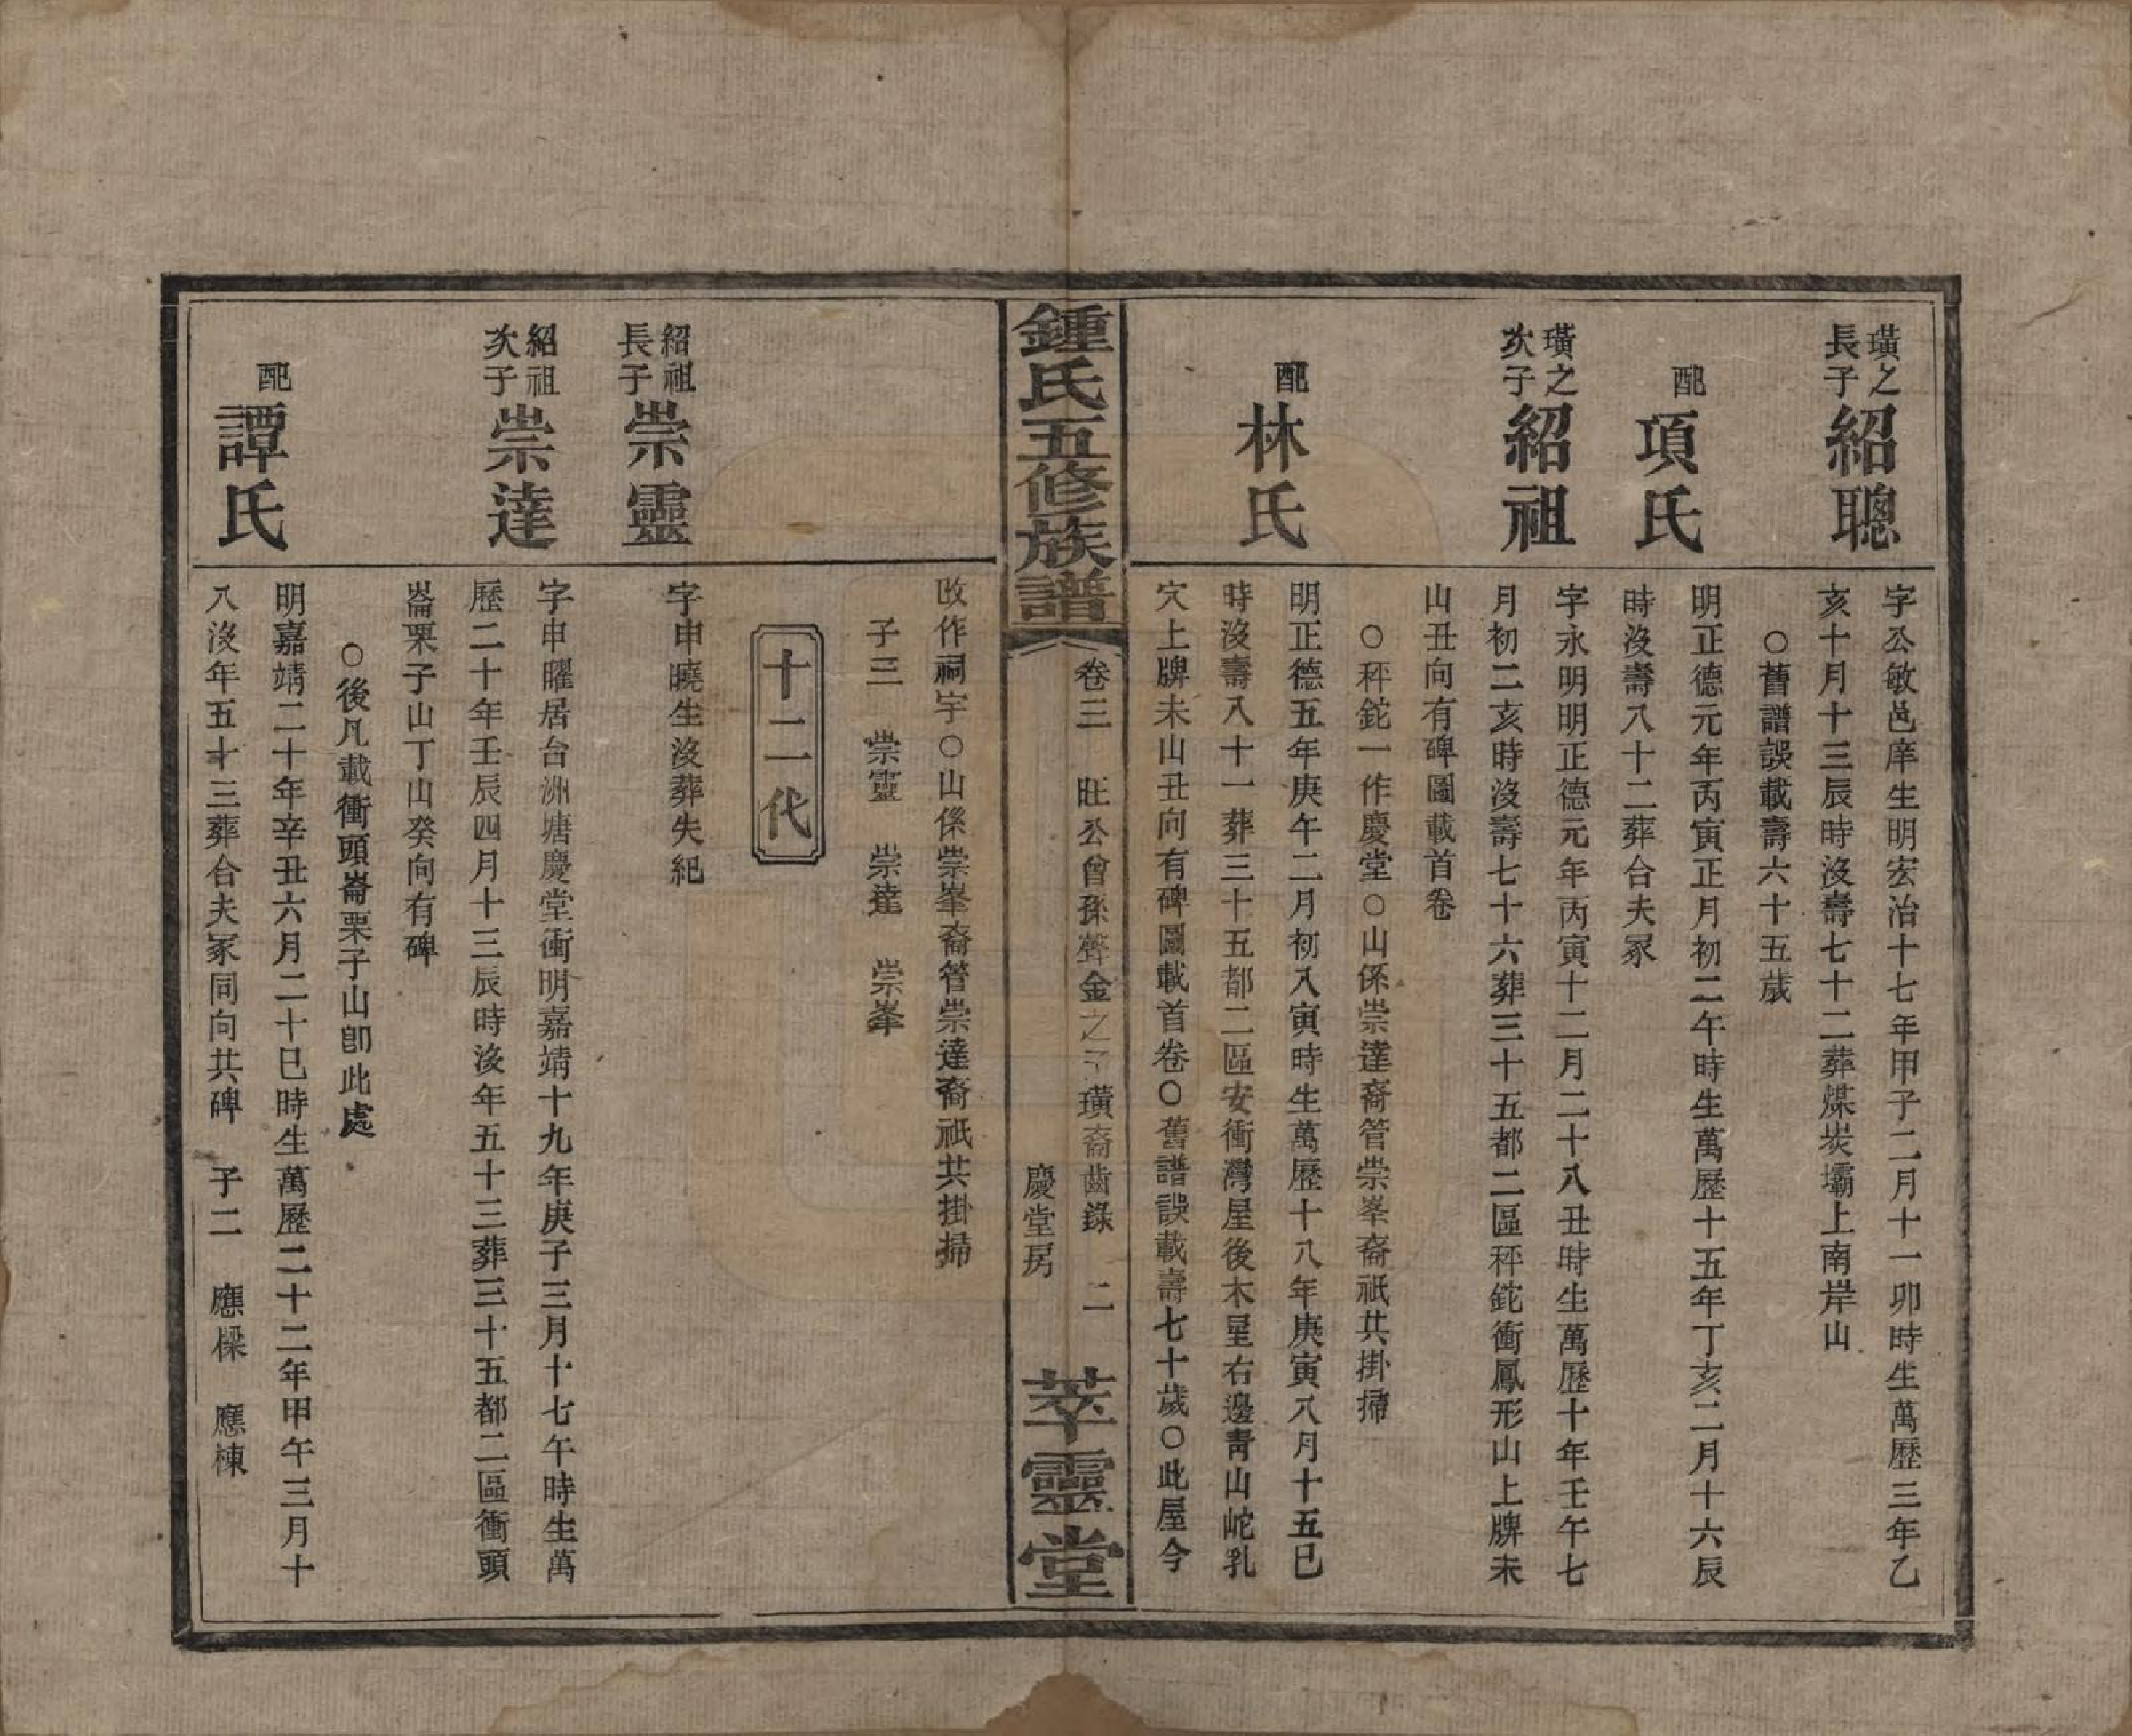 璜之
長子
紹聰
字公敏邑庠生明宏治十七年甲子二月十一卯時生萬歷三年乙
亥十月十三辰時沒壽七十二葬煤炭壩上南岸山
○舊譜誤載壽六十五歲
配
項氏
明正德元年丙寅正月初二午時生萬歷十五年丁亥二月十六辰
時沒壽八十二葬合夫冢
璜之
次子
紹祖
字永明明正德元年丙寅十二月二十八丑時生萬歷十年壬午七
月初二亥時沒壽七十六葬三十五都二區秤鉈衝鳳形山上牌未
山丑向有碑圖載首卷
○秤鉈一作慶堂○山係崇達裔管崇峯裔祇共掛掃
配
林氏
明正德五年庚午二月初八寅時生萬歷十八年庚寅八月十五巳
時沒壽八十一葬三十五都二區安衝灣屋後木星右邊靑山岮乳
穴上牌未山丑向有碑圖載首卷○舊譜誤載壽七十歲○此屋今
鍾氏五修族譜
卷三 旺公曾孫聲金之子璜裔齒錄 二
慶堂房
萃靈堂
改作祠宇○山係崇峯裔管崇達裔祇共掛掃
子三 崇靈 崇達 崇峯
十二代
紹祖
長子
崇靈
字申曉生沒葬失紀
紹祖
次子
崇達
字申曜居台洲塘慶堂衝明嘉靖十九年庚子三月十七午時生萬
歷二十年壬辰四月十三辰時沒年五十三葬三十五都二區衝頭
崙栗子山丁山癸向有碑
○後凡載衝頭崙栗子山卽此處
配
譚氏
明嘉靖二十年辛丑六月二十巳時生萬歷二十二年甲午三月十
八沒年五十三葬合夫冢同向共碑 子二 應樑 應棟